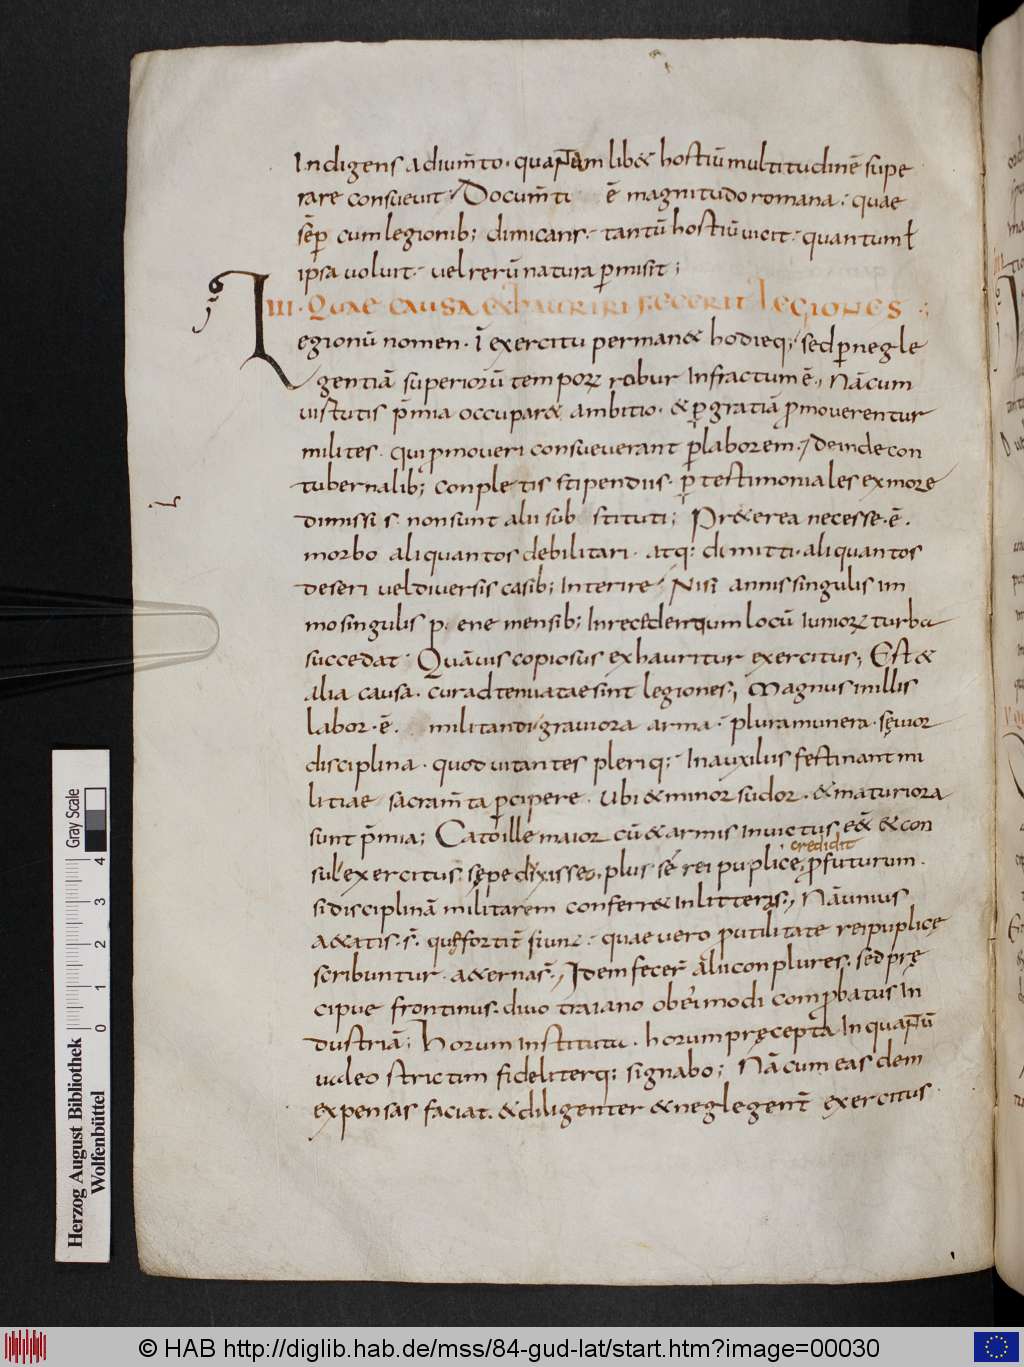 Indigens adium̄to· quaptum lib& hostiū multitudinē supe
rare consuevit; Docum̄ti ē magnitudo romana· quae
sēp cum legionib; dimicans· tantū hostiū vicit· quantum ł
ipsa voluit· vel rerū natura pmisit;
III· QUAE CAUSA EXHAURIRI FECERIT LEGIONES·;
Legionū nomen· ī exercitu perman& hodieq; sed p negle
gentiā superiorū temporꝝ robur Infractum ē, Nā cum
virtutis p̄mia occupar& ambitio· & p gratiā pmoverentur
milites· qui pmoveri consueverant p laborem; deinde con
tubernalib; conpletis stipendiis· p testimoniales ex more
dimissi s· non sunt alii sub stituti; Pr&erea necesse·ē·
morbo aliquantos debilitari· atq; dimitti· aliquantos
deseri vel diversis casib; Interire· Nisi annis singulis im
mo singulis p ene mensib; In recedentium locū Iuniorꝝ turba
succedat· Quāvis copiosus exhauritur exercitus; Est &
alia causa· cur adtenuatae sint legiones; Magnus in illis
labor·ē· militandi graviora arma· plura munera· sęvior
disciplina· quod vitantes pleriq; In auxiliis festinant mi
litiae sacram̄ta pcipere· Ubi & minor sudor· & maturiora
sunt p̄mia; Cato ille maior cū & armis invictus eē & con
credidit
sul exercitus sępe dixisse&, plus sē rei puplicę pfuturum·
si disciplinā militarem conferr& In litteris; Nā unius
a&atis·s̄· quę fortit̄ fiunt· quae vero p utilitate rei puplicę
scribuntur· a&erna s̄; Idem fecer̄ alii conplures· sed prę
cipue frontinus· divo traiano ob ei'modi comprobatus In
dustriā; Horum Instituta· horum pręcepta In quaptū
valeo strictim fideliterq; signabo; Nā cum eas dem
expensas faciat· & diligenter & neglegent̄ exercitus
Gray Scale
0 1 2 3 4
Herzog August Bibliothek
Wolfenbüttel
© HAB http://diglib.hab.de/mss/84-gud-lat/start.htm?image=00030